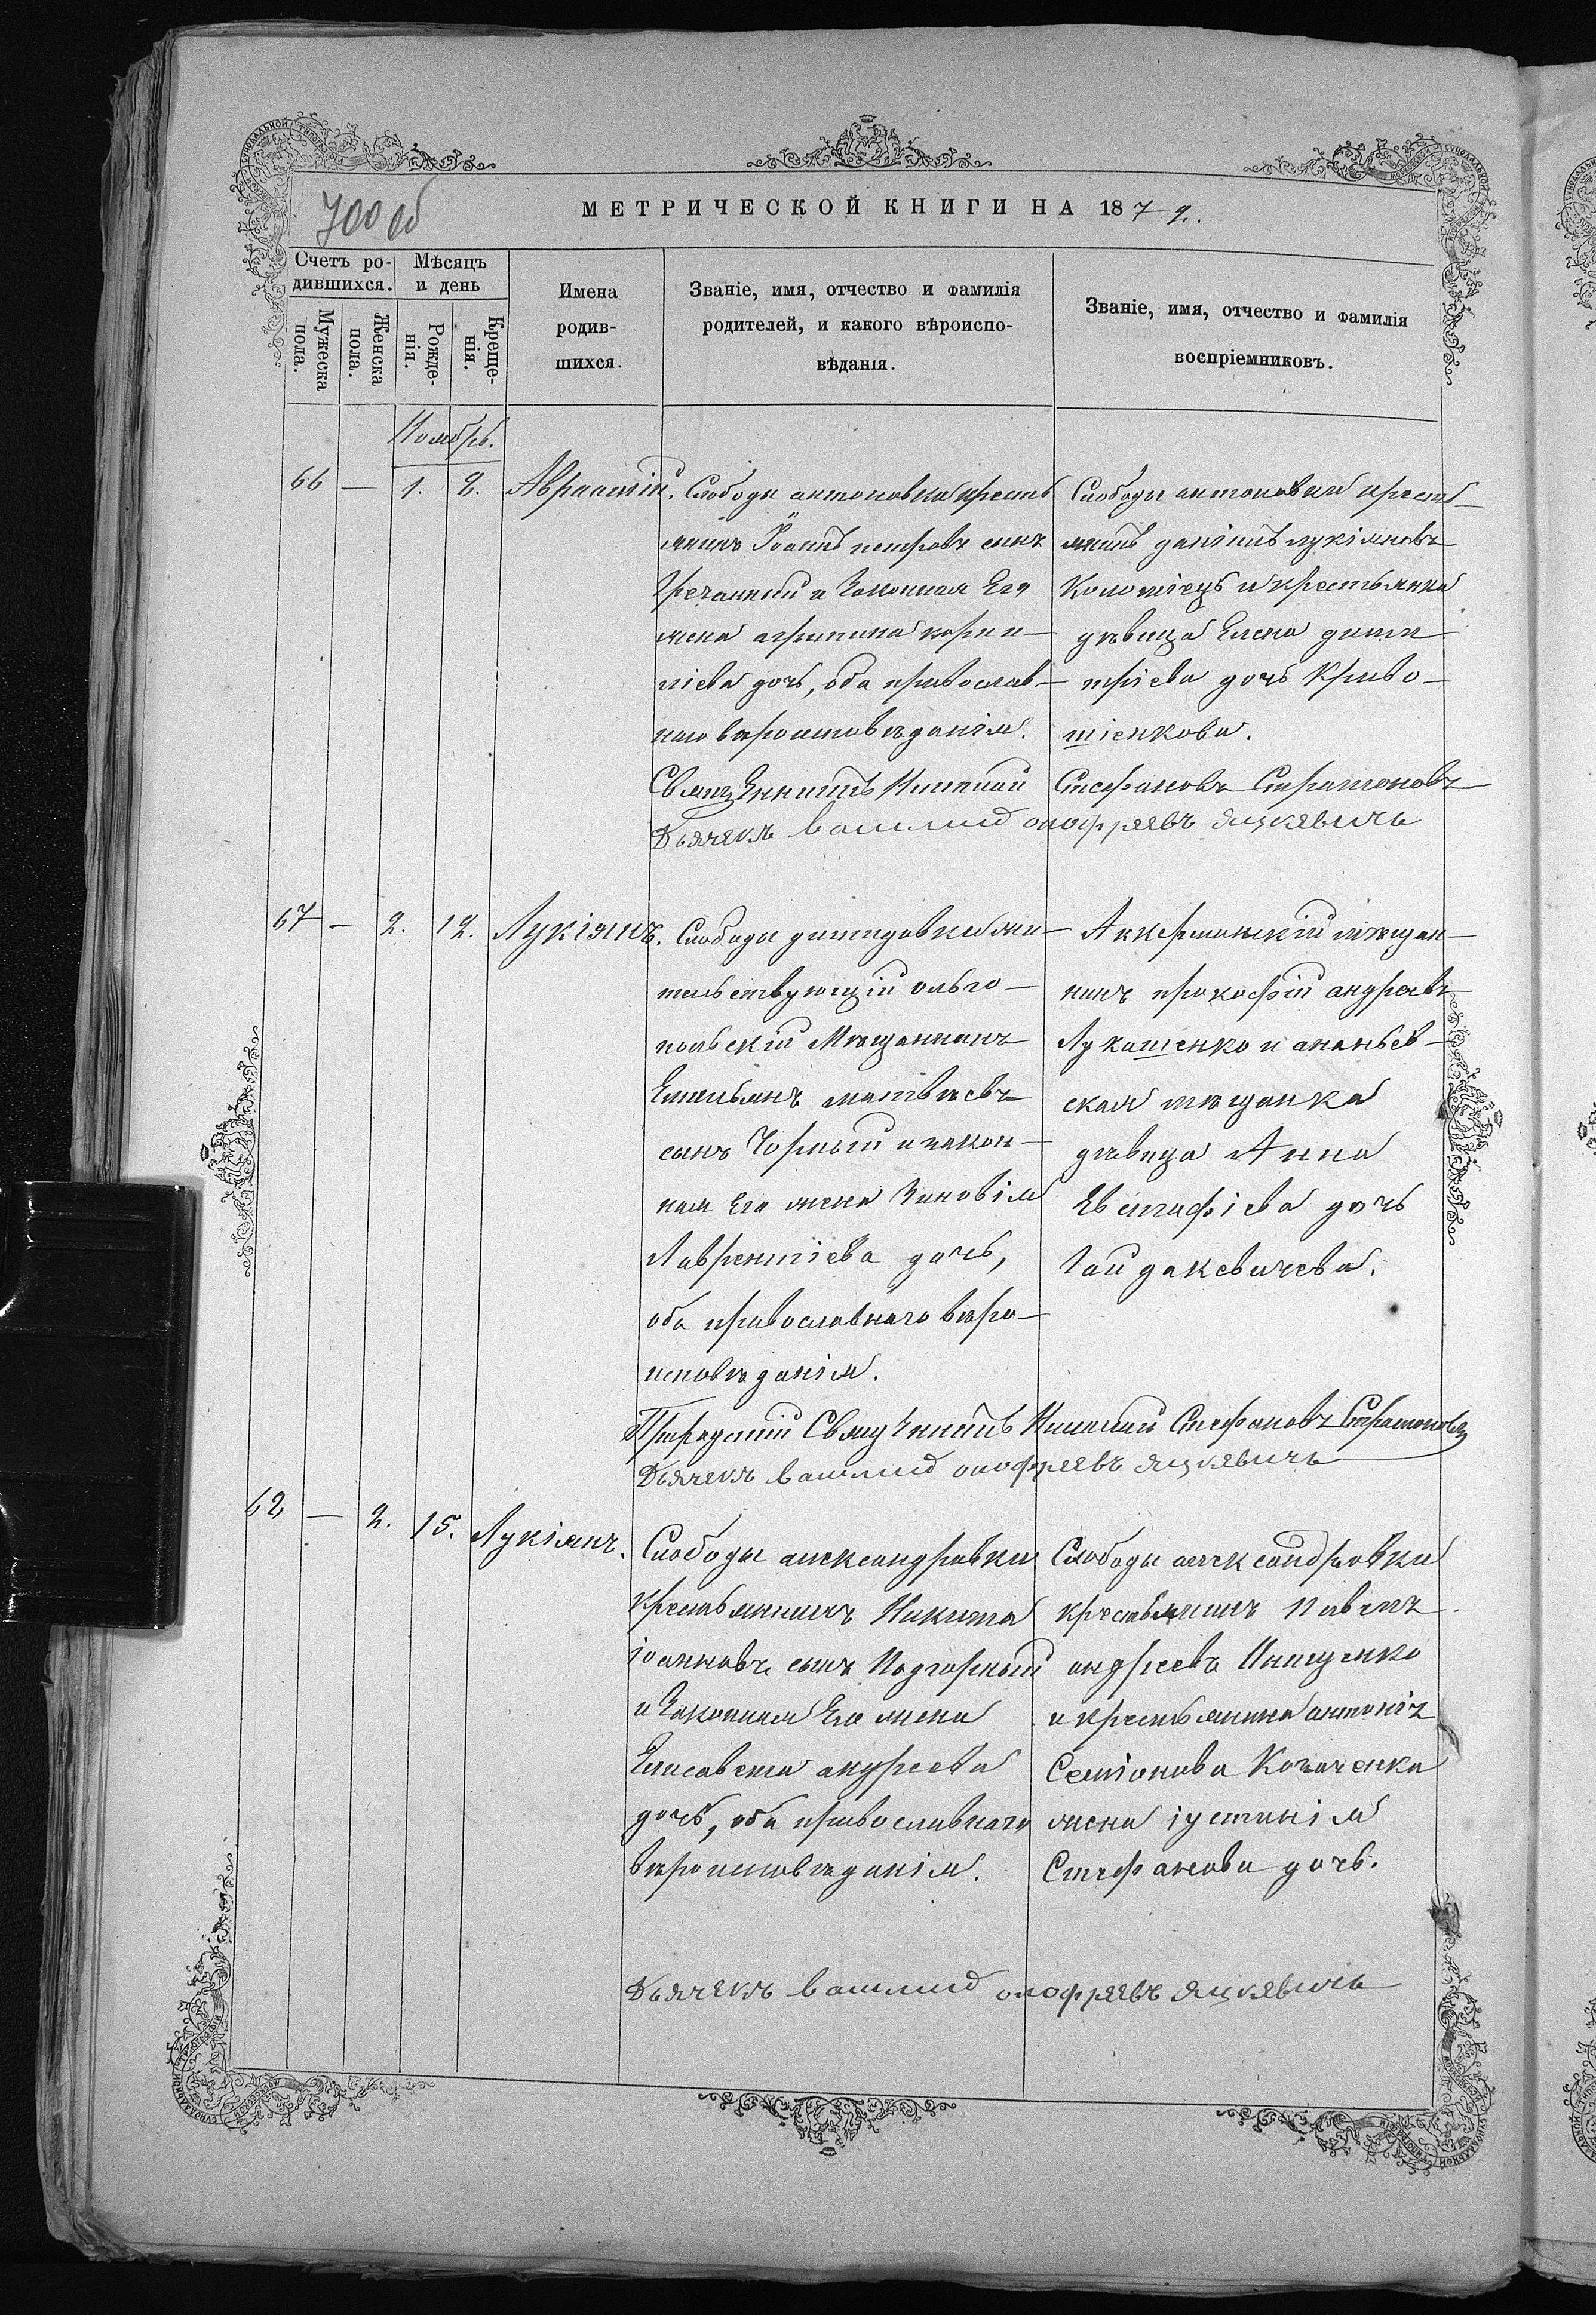 700 об
МЕТРИЧЕСКОЙ КНИГИ НА 1872.
Счетъ ро-
дившихся.
Мѣсяцъ
и день
Мужеска
пола.
Женска
пола.
Рожде-
нія.
Креще-
нія.
Имена
родив-
шихся.
Званіе, имя, отчество и фамилія
родителей, и какого вѣроиспо-
вѣданія.
Званіе, имя, отчество и фамилія
воспріемниковъ.
Ноябрь.
66 — 1. 2. Аврамій.
Слободы антоновки крестъ
янинъ Іоаннъ петровъ сынъ
Гречаный и Законная Его
жена агрипина корни-
ліева дочь, оба православ-
наго вѣроисповѣданія.
Слободы антоновки крестъ-
янинъ даніилъ лукіяновъ
Коломіецъ и крестьянка
дѣвица Елена дими-
тріева дочь Криво-
шіенкова.
СвященникЪ Николай Стефановъ Стратоновъ
Дьячекъ василий онофреевъ яцкевичь
67 — 2. 12. Лукіянъ.
Слободы демидовки жи-
тельствующій ольго-
польскій Мѣщанинъ
Емельянъ матвѣевъ
сынъ Чорный и закон-
ная Его жена Зиновія
Лаврентіева дочь,
оба православнаго вѣро-
исповѣданія.
Аккерманскій мѣщан-
инъ прокофій андреевъ
Лукашенко и ананьев-
ская мѣщанка
дѣвица Анна
Евстафіева дочь
Гайдакевичева.
Священникъ Николай Стефановъ Стратоновъ
Дьячекъ василий онофреевъ яцкевичь
62 — 2. 15. Лукіянъ.
Слободы александровки
крестьянинъ Никита
іоанновъ сынъ Подгорный
и Законная Его жена
Елисавета андреева
дочь, оба православнаго
вѣроисповѣданія.
Слободы александровки
крестьянинъ Павелъ
андреевъ Ищенко
и крестьянина антонія
Семіонова Козаченка
жена іустинія
Стефанова дочь.
Дьячекъ василий онофреевъ яцкевичь